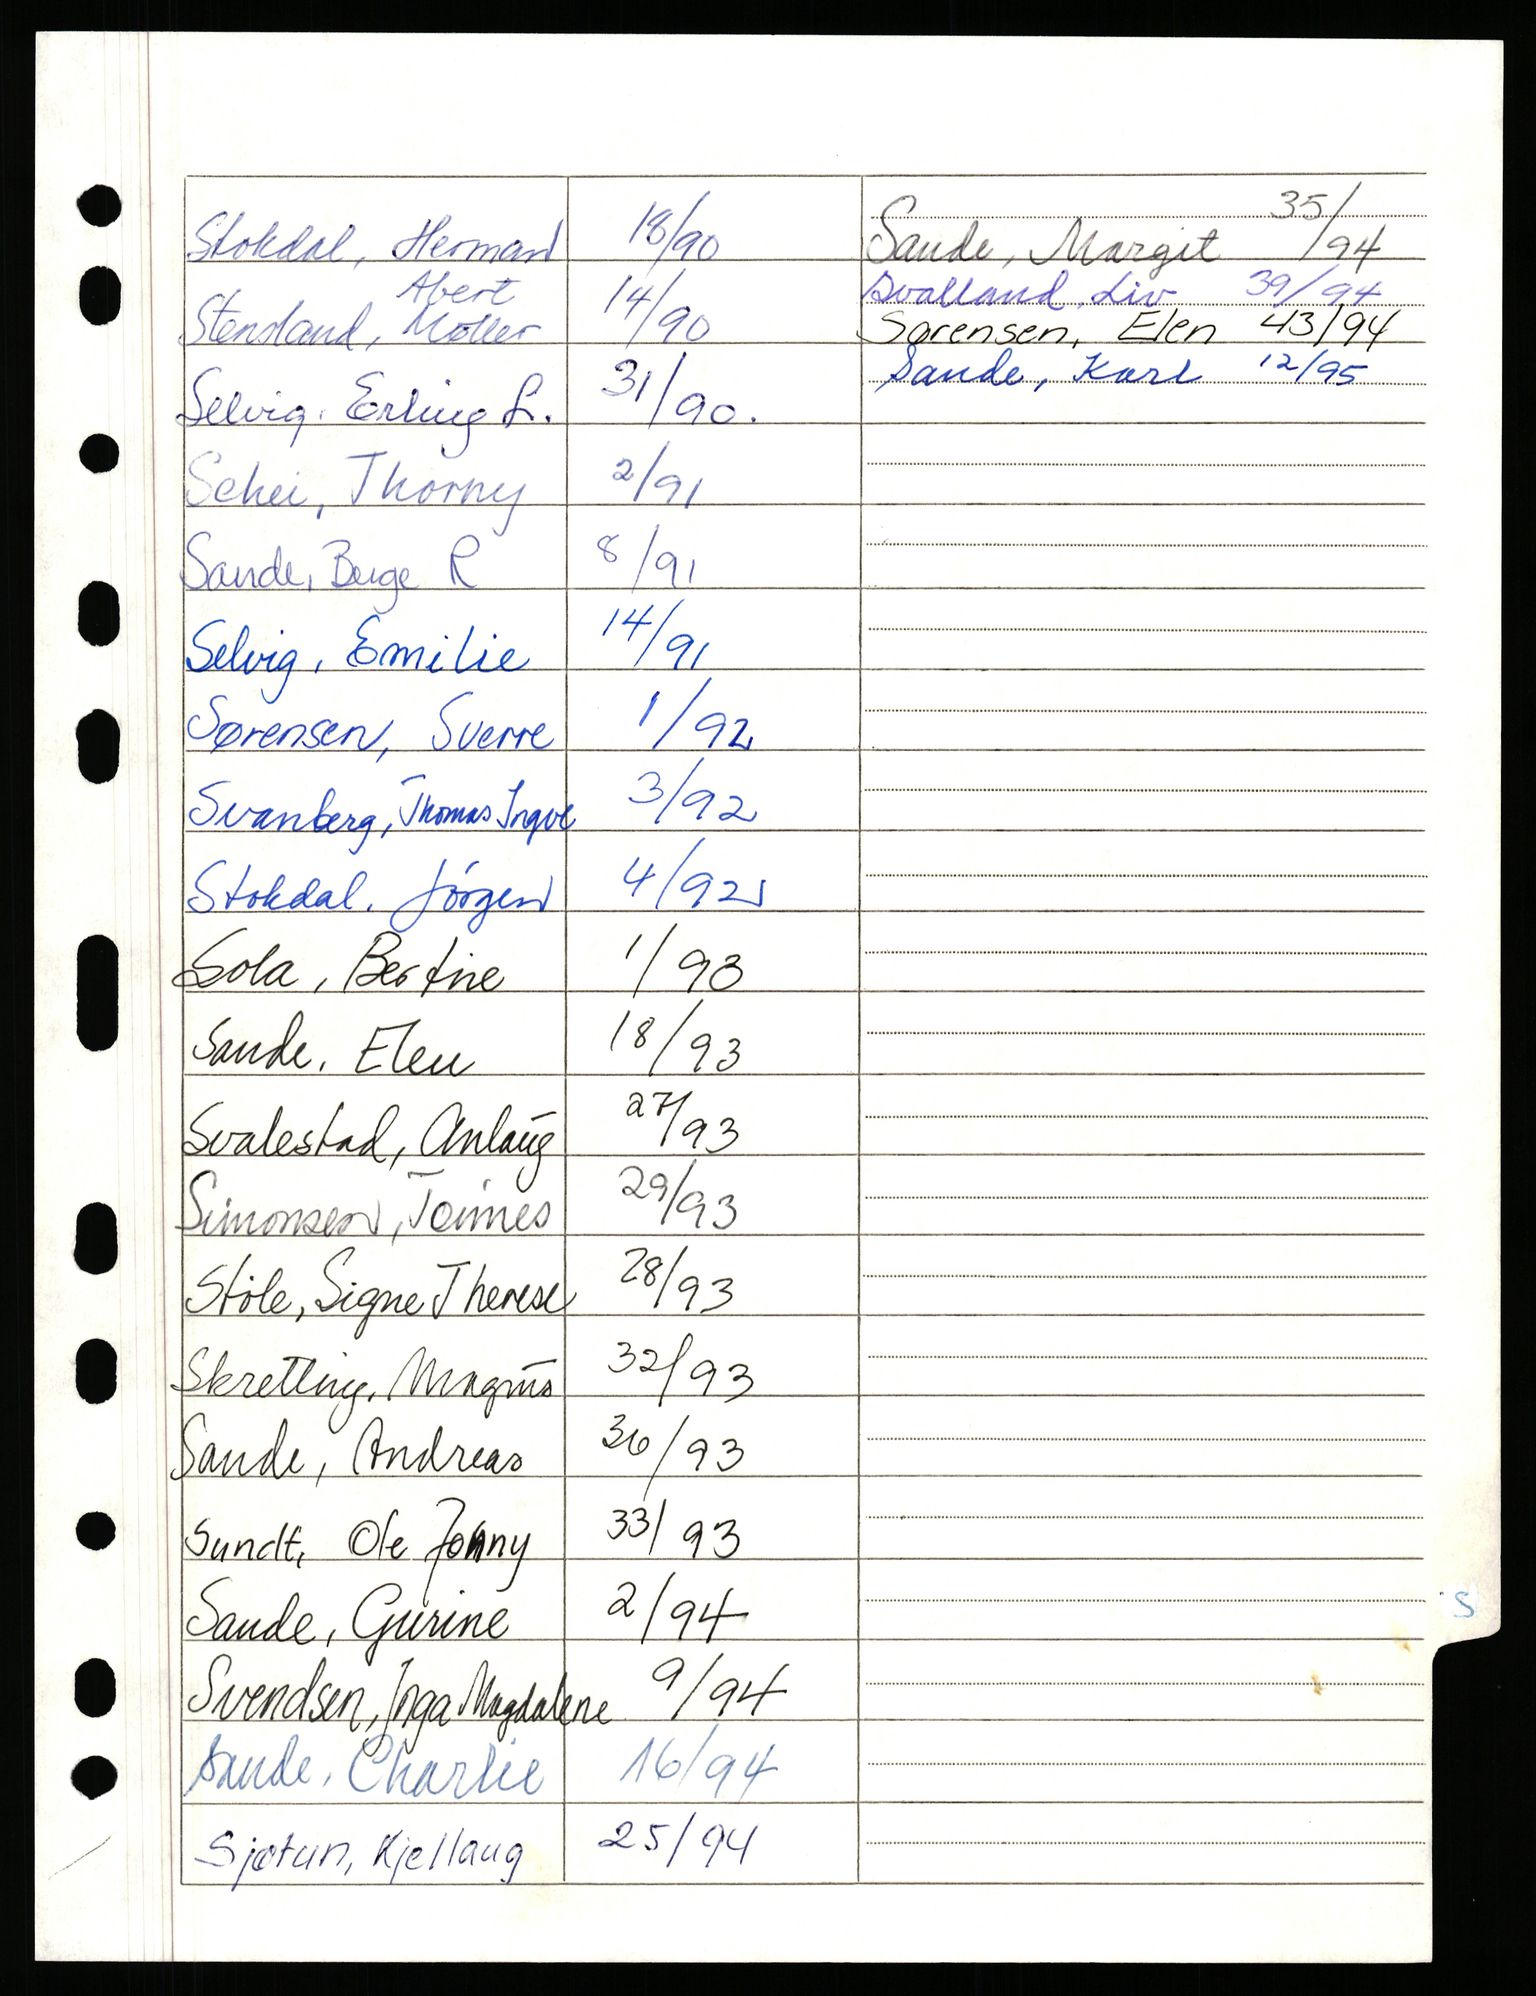 Stokdal, Herman 18/90
Abert
Stensland, Møller 14/90
Selvig, Erling L. 31/90.
Schei, Thorny 2/91
Sande, Berge R 8/91
Selvig, Emilie 14/91
Sørensen, Sverre 1/92
Svanberg, Thomas Ingve 3/92
Stokdal, Jörgen 4/92
Sola, Bertine 1/93
Sande, Elen 18/93
Svalestad, Anlaug 27/93
Simonsen, Tønnes 29/93
Støle, Signe Therese 28/93
Skretting, Magnus 32/93
Sande, Andreas 36/93
Sundt, Ole Johnny 33/93
Sande, Gurine 2/94
Svendsen, Inga Magdalene 9/94
Sande, Charlie 16/94
Sjøtun, Kjellaug 25/94
Sande, Margit 35/94
Svalland, Liv 39/94
Sørensen, Elen 43/94
Sande, Karl 12/95
S